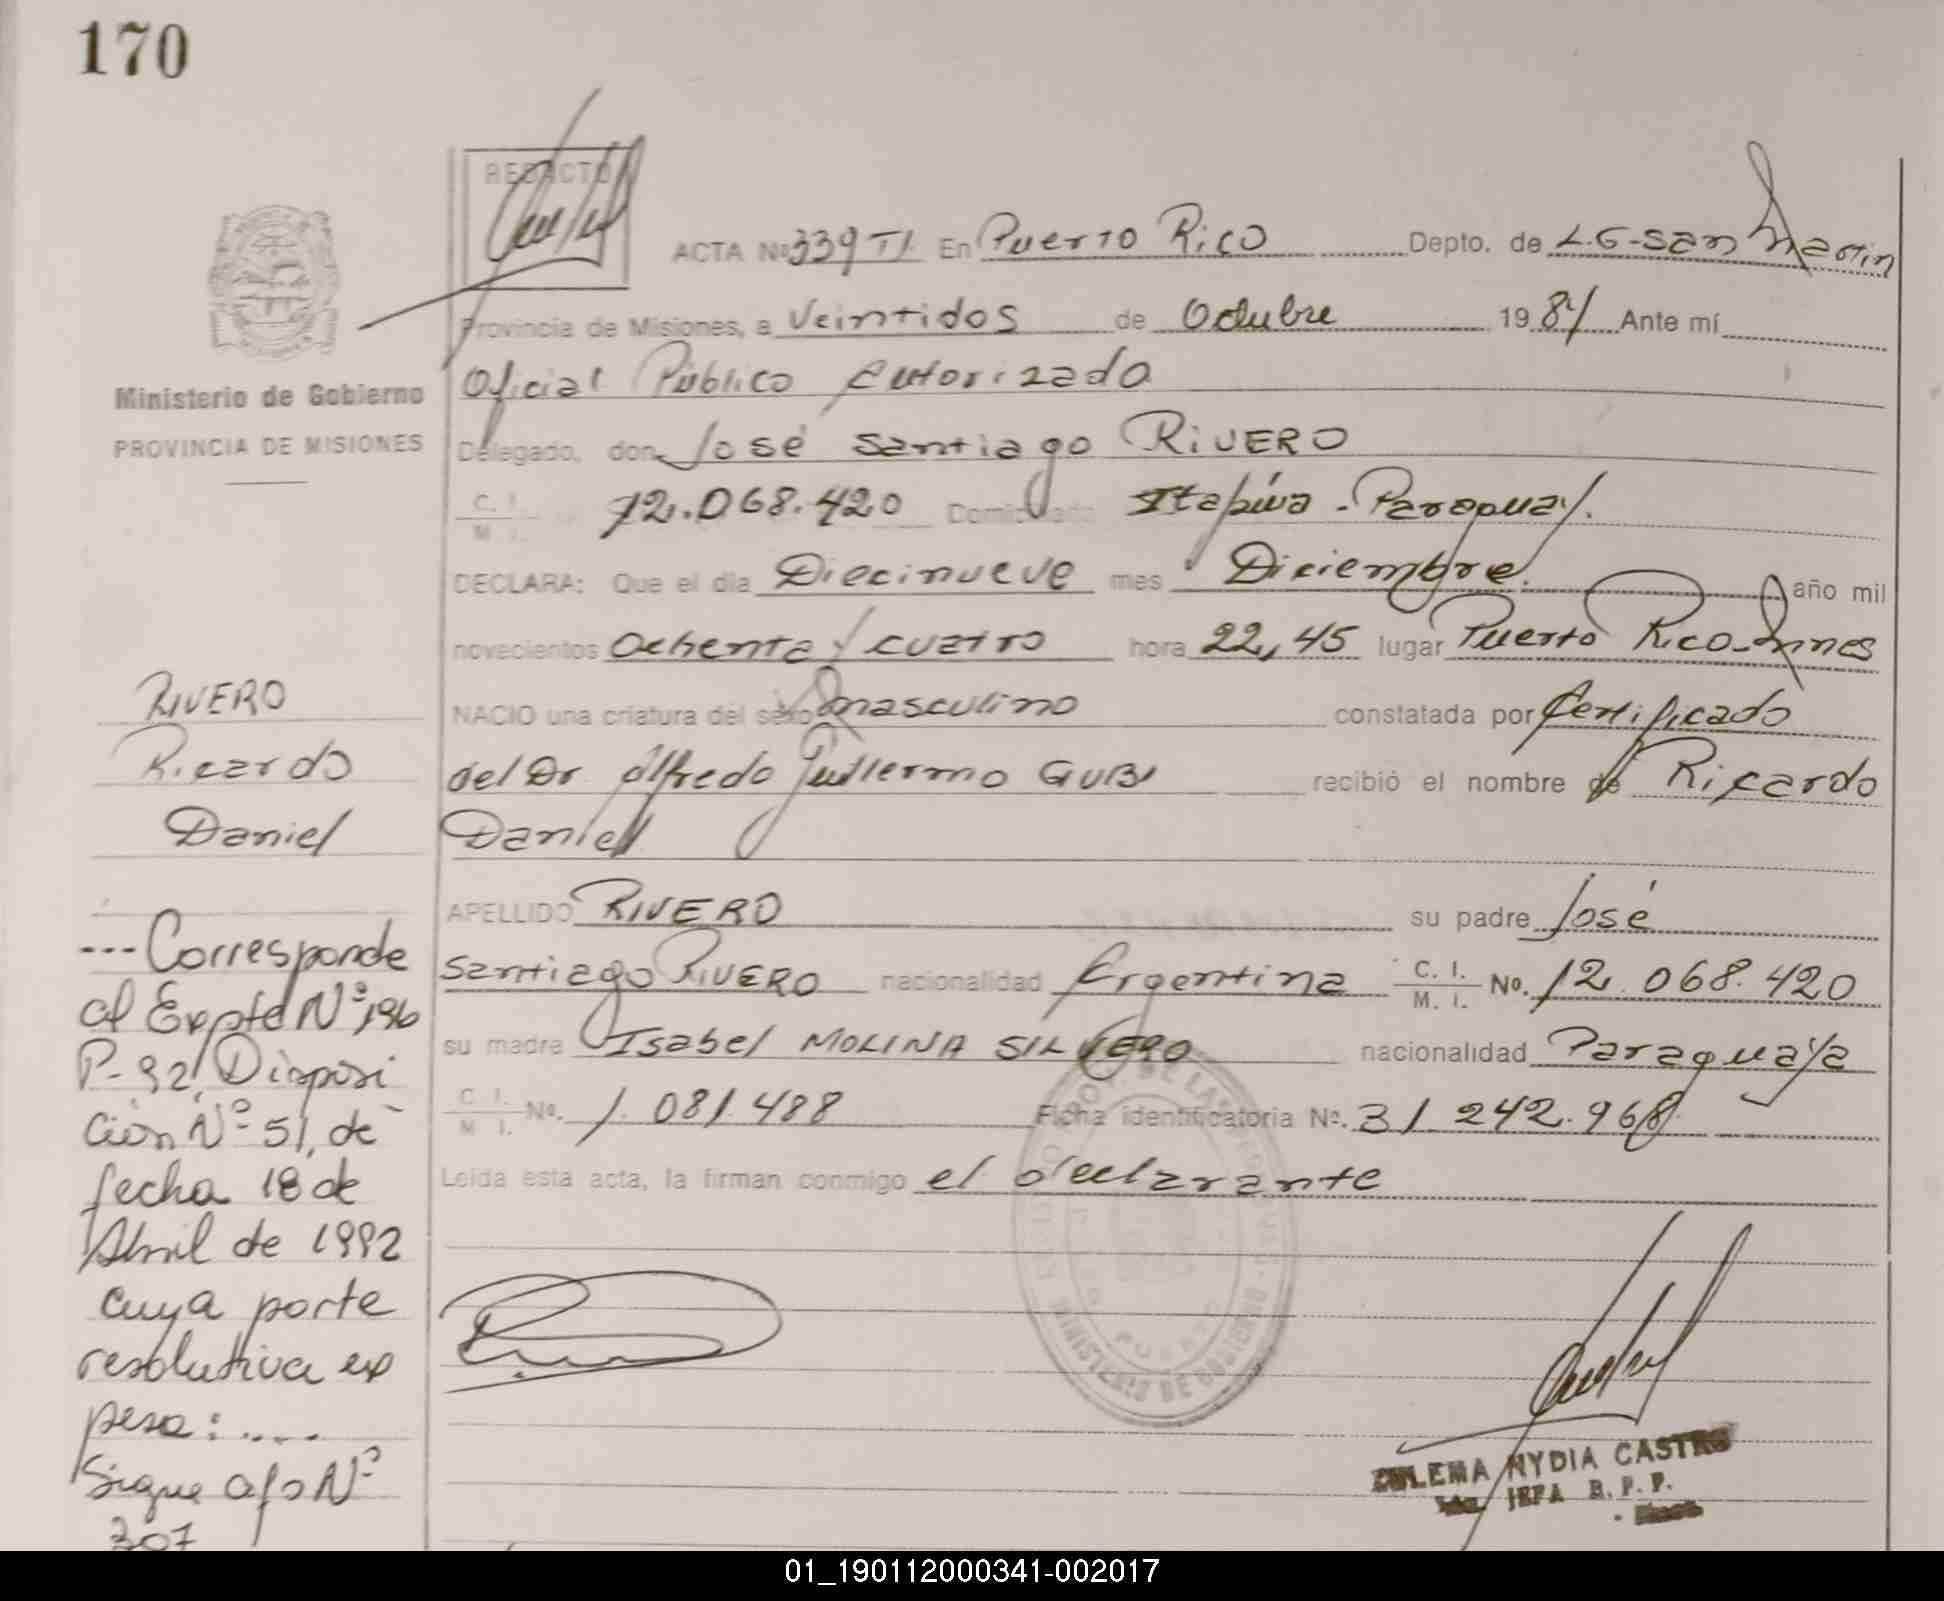 170
REDACTO
ACTA Nº 339 TI. En Puerto Rico Depto. de L.G-San Martin
Provincia de Misiones, a Veintidos de Octubre 198 Ante mí
Oficial Público Autorizado
Delegado, don José Santiago RIVERO
C. I. / M. I. 12.068.420 Domiciliado Itapúa - Paraguay.
DECLARA: Que el dia Diecinueve mes Diciembre. año mil
novecientos Ochenta y cuatro hora 22,45 lugar Puerto Rico-Mnes
NACIO una criatura del sexo masculino constatada por Certificado
del Dr Alfredo Guillermo GUBI recibió el nombre de Ricardo
Daniel
APELLIDO RIVERO su padre José
Santiago RIVERO nacionalidad Argentina C. I. / M. I. No. 12.068.420
su madre Isabel MOLINA SILVERO nacionalidad Paraguaya
C. I. / M. I. No. 1.081.488 Ficha identificatoria Nº. 31.242.968
Leída esta acta, la firman conmigo el declarante
Ministerio de Gobierno
PROVINCIA DE MISIONES
RIVERO
Ricardo
Daniel
---Corresponde
al Expte Nº 196
P-92, Disposi
ción Nº 51, de
fecha 18 de
Abril de 1992
cuya parte
resolutiva ex
presa:....
Sigue a fo Nº
307
MINISTERIO DE GOBIERNO
ZULEMA NYDIA CASTRO
JEFA R. P. P.
01_190112000341-002017